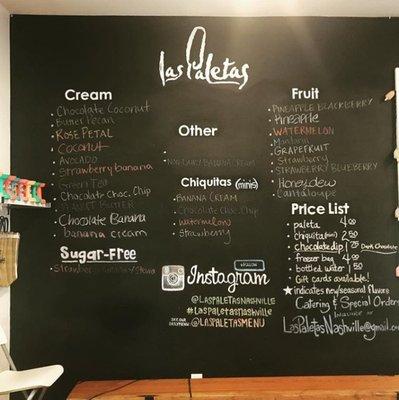 las Paletas
Cream
Chocolate Coconut
Butter Pecan
ROSE PETAL
COCONUT
AVOCADO
Strawberry banana
Green Tea
Chocolate Choc. Chip
PEANUT BUTTER
Chocolate Banana
banana cream
Sugar-Free
Strawberry
Other
NON-DAIRY BANANA CREAM
Chiquitas (minis)
BANANA CREAM
Chocolate Choc. Chip
watermelon
Strawberry
FOLLOW
Instagram
@LASPALETASNASHVILLE
#LasPaletasNashville
@LASPALETASMENU
Fruit
PINEAPPLE BLACKBERRY
Pineapple
WATERMELON
Mandarin
GRAPEFRUIT
Strawberry
STRAWBERRY BLUEBERRY
Honeydew
Cantaloupe
Price List
paleta 4.00
chiquita (mini) 2.50
chocolate dip .75 Dark Chocolate
freezer bag 4.00
bottled water 1.50
Gift cards available!
★ indicates new/seasonal flavors
Catering & Special Orders
LasPaletasNashville@gmail.com